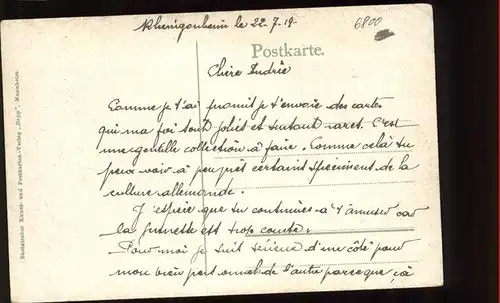 Rheingönheim le 22-7-19
6800
Postkarte.
Chère Andrée
Comme je t'ai promit je t'envoie des cartes
qui ma foi sont jolies et surtout rares. C'est
une gentille collection à faire. Comme celà tu
peux voir à peu près certains specimens de la
culture allemande.
J'espère que tu continues à t'amuser car
la jeunesse est trop courte.
Pour moi je suis sérieux d'un côté pour
mon bien personnel de l'autre parceque çà
Rheinischer Kunst- und Postkarten-Verlag „Hepp", Mannheim.